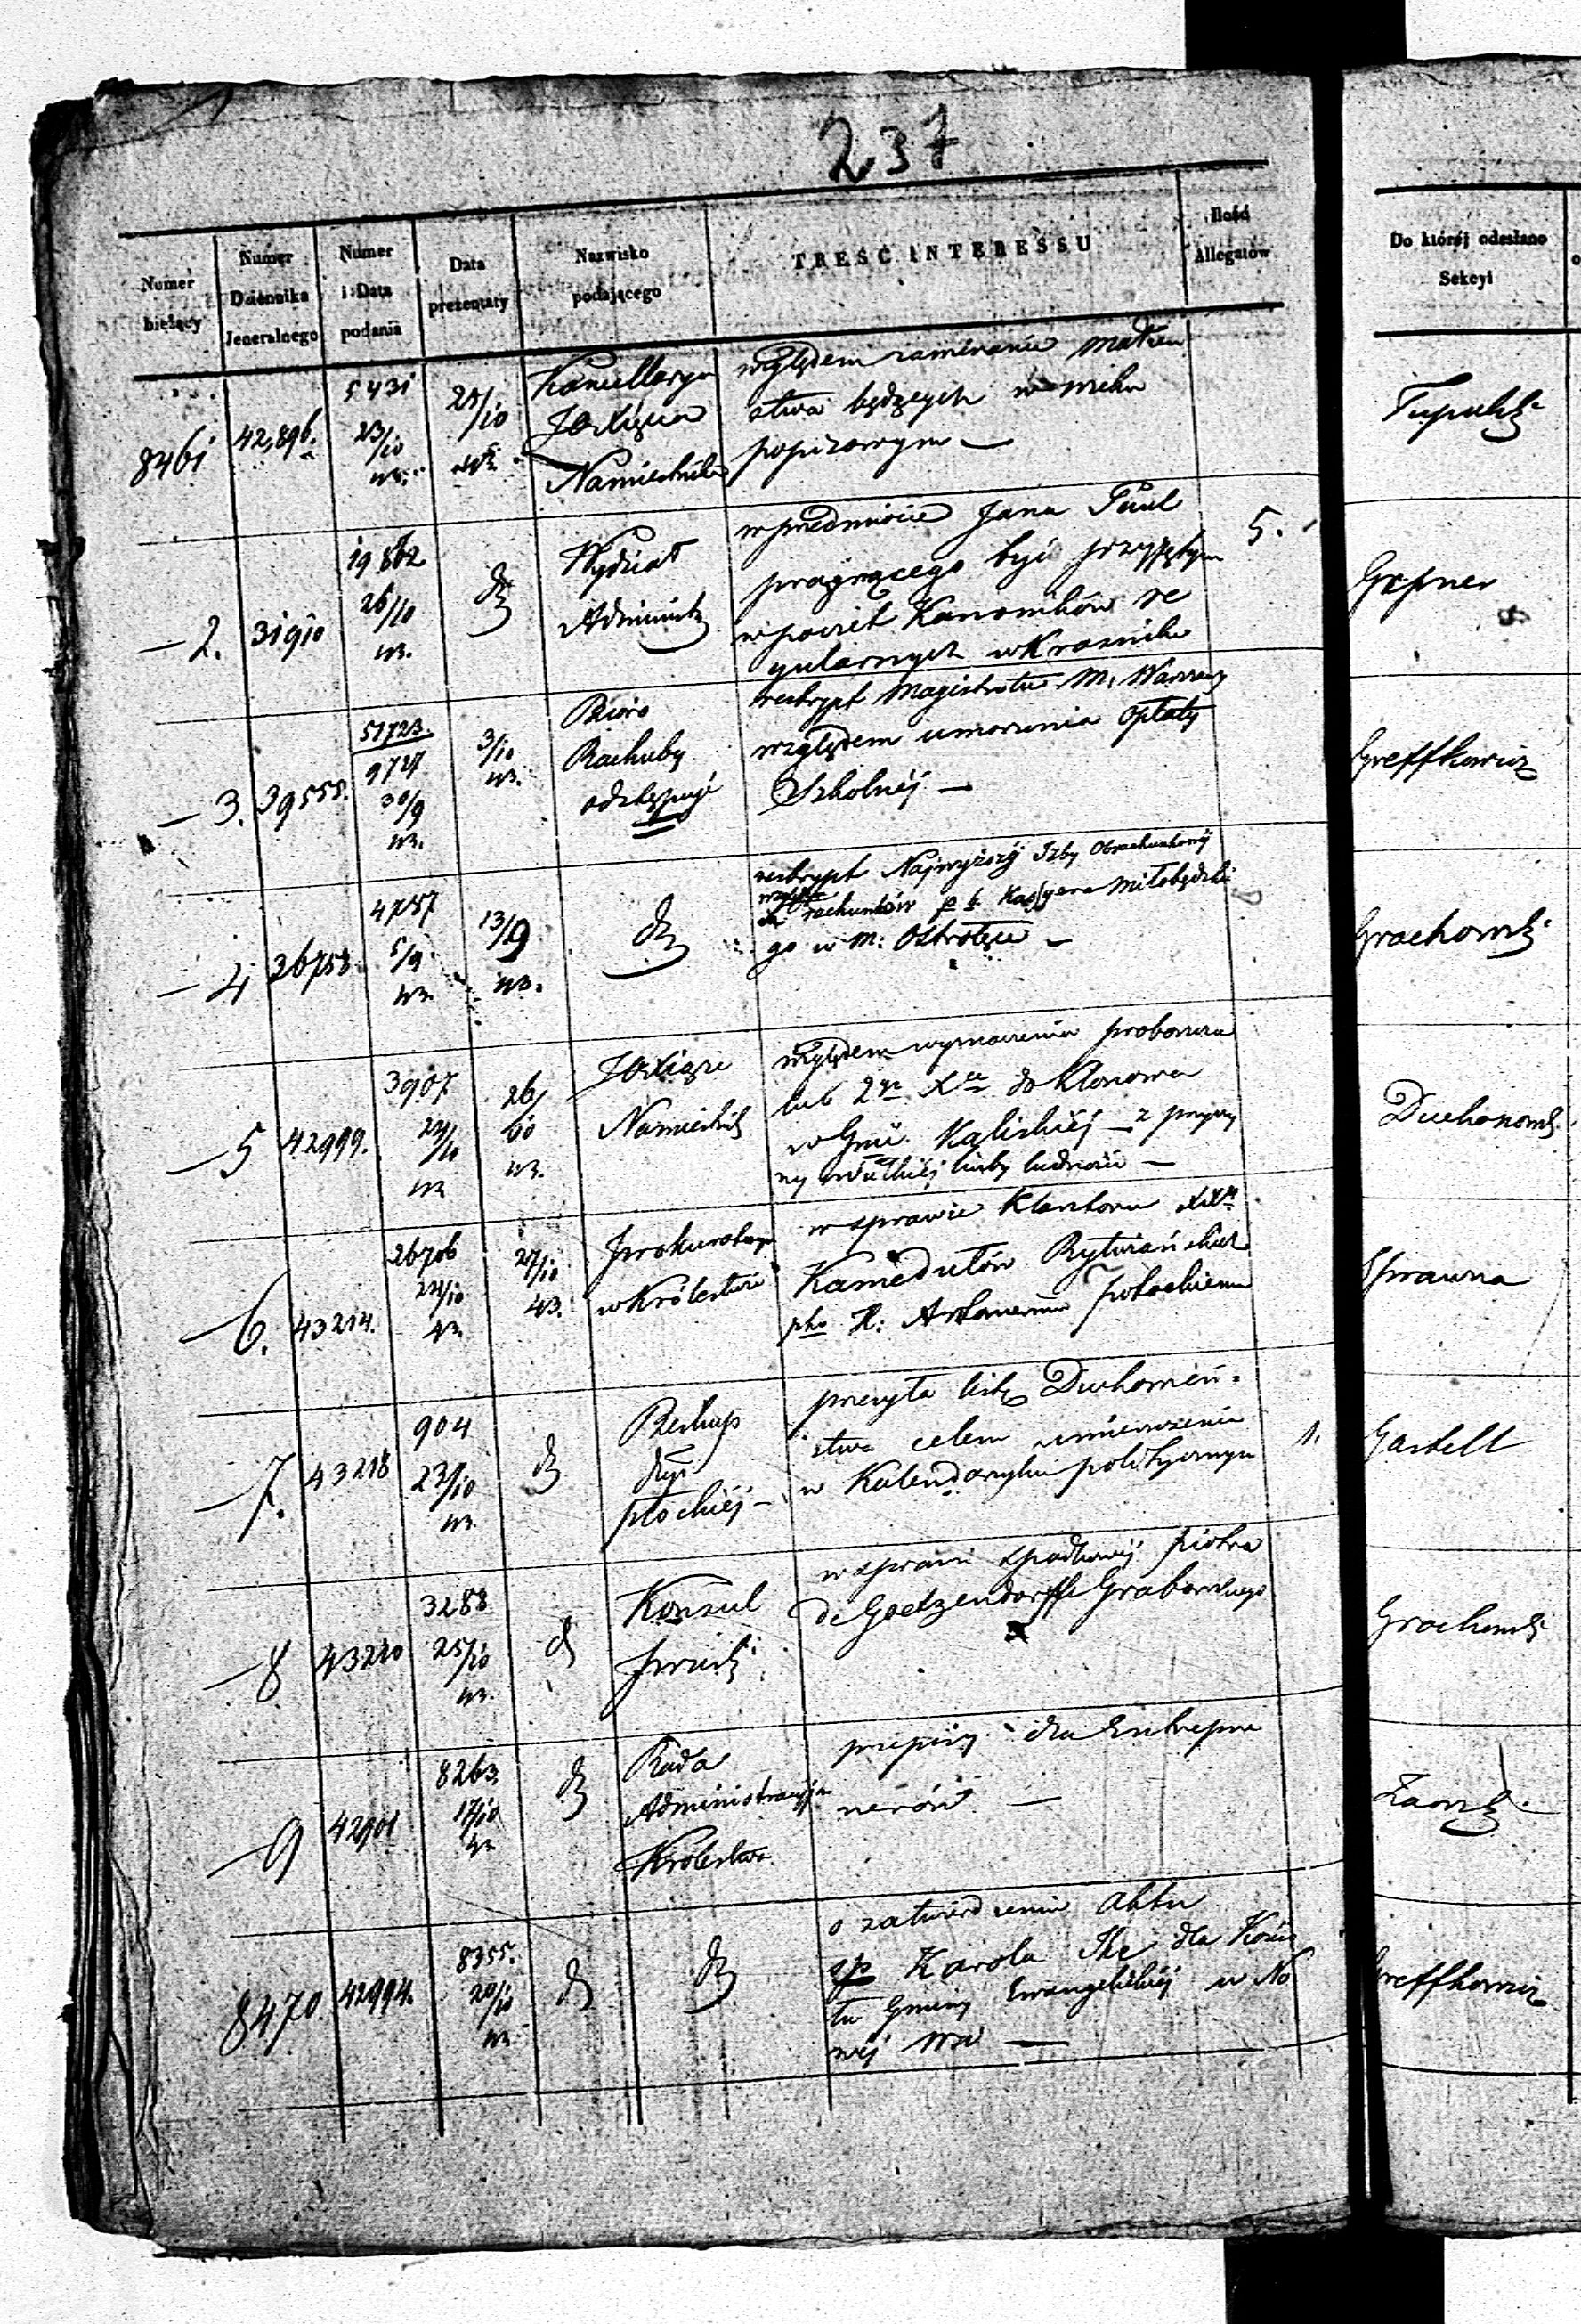 237
Numer bieżący
Numer Dziennika Jeneralnego
Numer i Data podania
Data prezentaty
Nazwisko podającego
TREŚĆ INTERESSU
Ilość Allegatów
Do któréj odesłano Sekcyi
8461
42,896.
5431
23/10
43.
25/10
43.
Kancellarya
JO Xięcia
Namiestnika
względem zawierania małżeń
stwa będących w wieku
popisowym —
— 2.
31910
19862
26/10
43.
Wydział
Administ
w przedmiocie Jana Paul
pragnącego być przyjętym
w poczet Kanoników re
gularnych w Kraśniku
5.
Gepner
— 3.
39555.
51723.
9727
30/9
43.
3/10
43.
Biuro
Rachuby
odstępuje
reskrypt Magistratu M. Warszawy
względem umorzenia opłaty
Szkolnéj —
Greffkowicz
— 4
36758
4757
5/9
43.
13/9
43.
reskrypt Najwyższéj Izby Obrachunkowéj
rachunków p. b. Kassyera Miłobędzkie
go w m: Ostrołęce —
Grochowsk
— 5
42999.
3907
24/10
43
26/10
43.
JO Xiąże
Namiestnik
względem wyznaczenia proboszcza
lub 2go Xa do Klonowa
w Gub. Kaliskiéj — z przyczy
ny wielkiéj liczby ludności —
Duchowns.
— 6.
43214.
26706
24/10
43.
27/10
43.
Prokuratorya
w Królestwie
w sprawie Klasztoru XXw
Kamedułów Rytwiańskich
pko H: Arturowi Potockiemu
Sprawna
— 7.
43218
904
23/10
43.
Biskup
Dyec
płockiéj —
przesyła listę Duchowień-
stwa celem umieszczenia
w Kalendarzyku politycznym
1.
Gastell
— 8
43210
3288
25/10
43.
Konsul
Pruski
w sprawie spadkowéj Piotra
de Goetzendorff Grabowskiego
Grochowsk
— 9
42901
8263
17/10
43
Rada
Administracyjna
Królestwa
przepisy dla Entrepre
nerów —
8470.
42994.
8355.
20/10
43
o zatwierdzenie Aktu
sp Karola The dla Kościo
ła Gminy Ewangelickiéj w No
wéj Wsi —
Greffkowicz